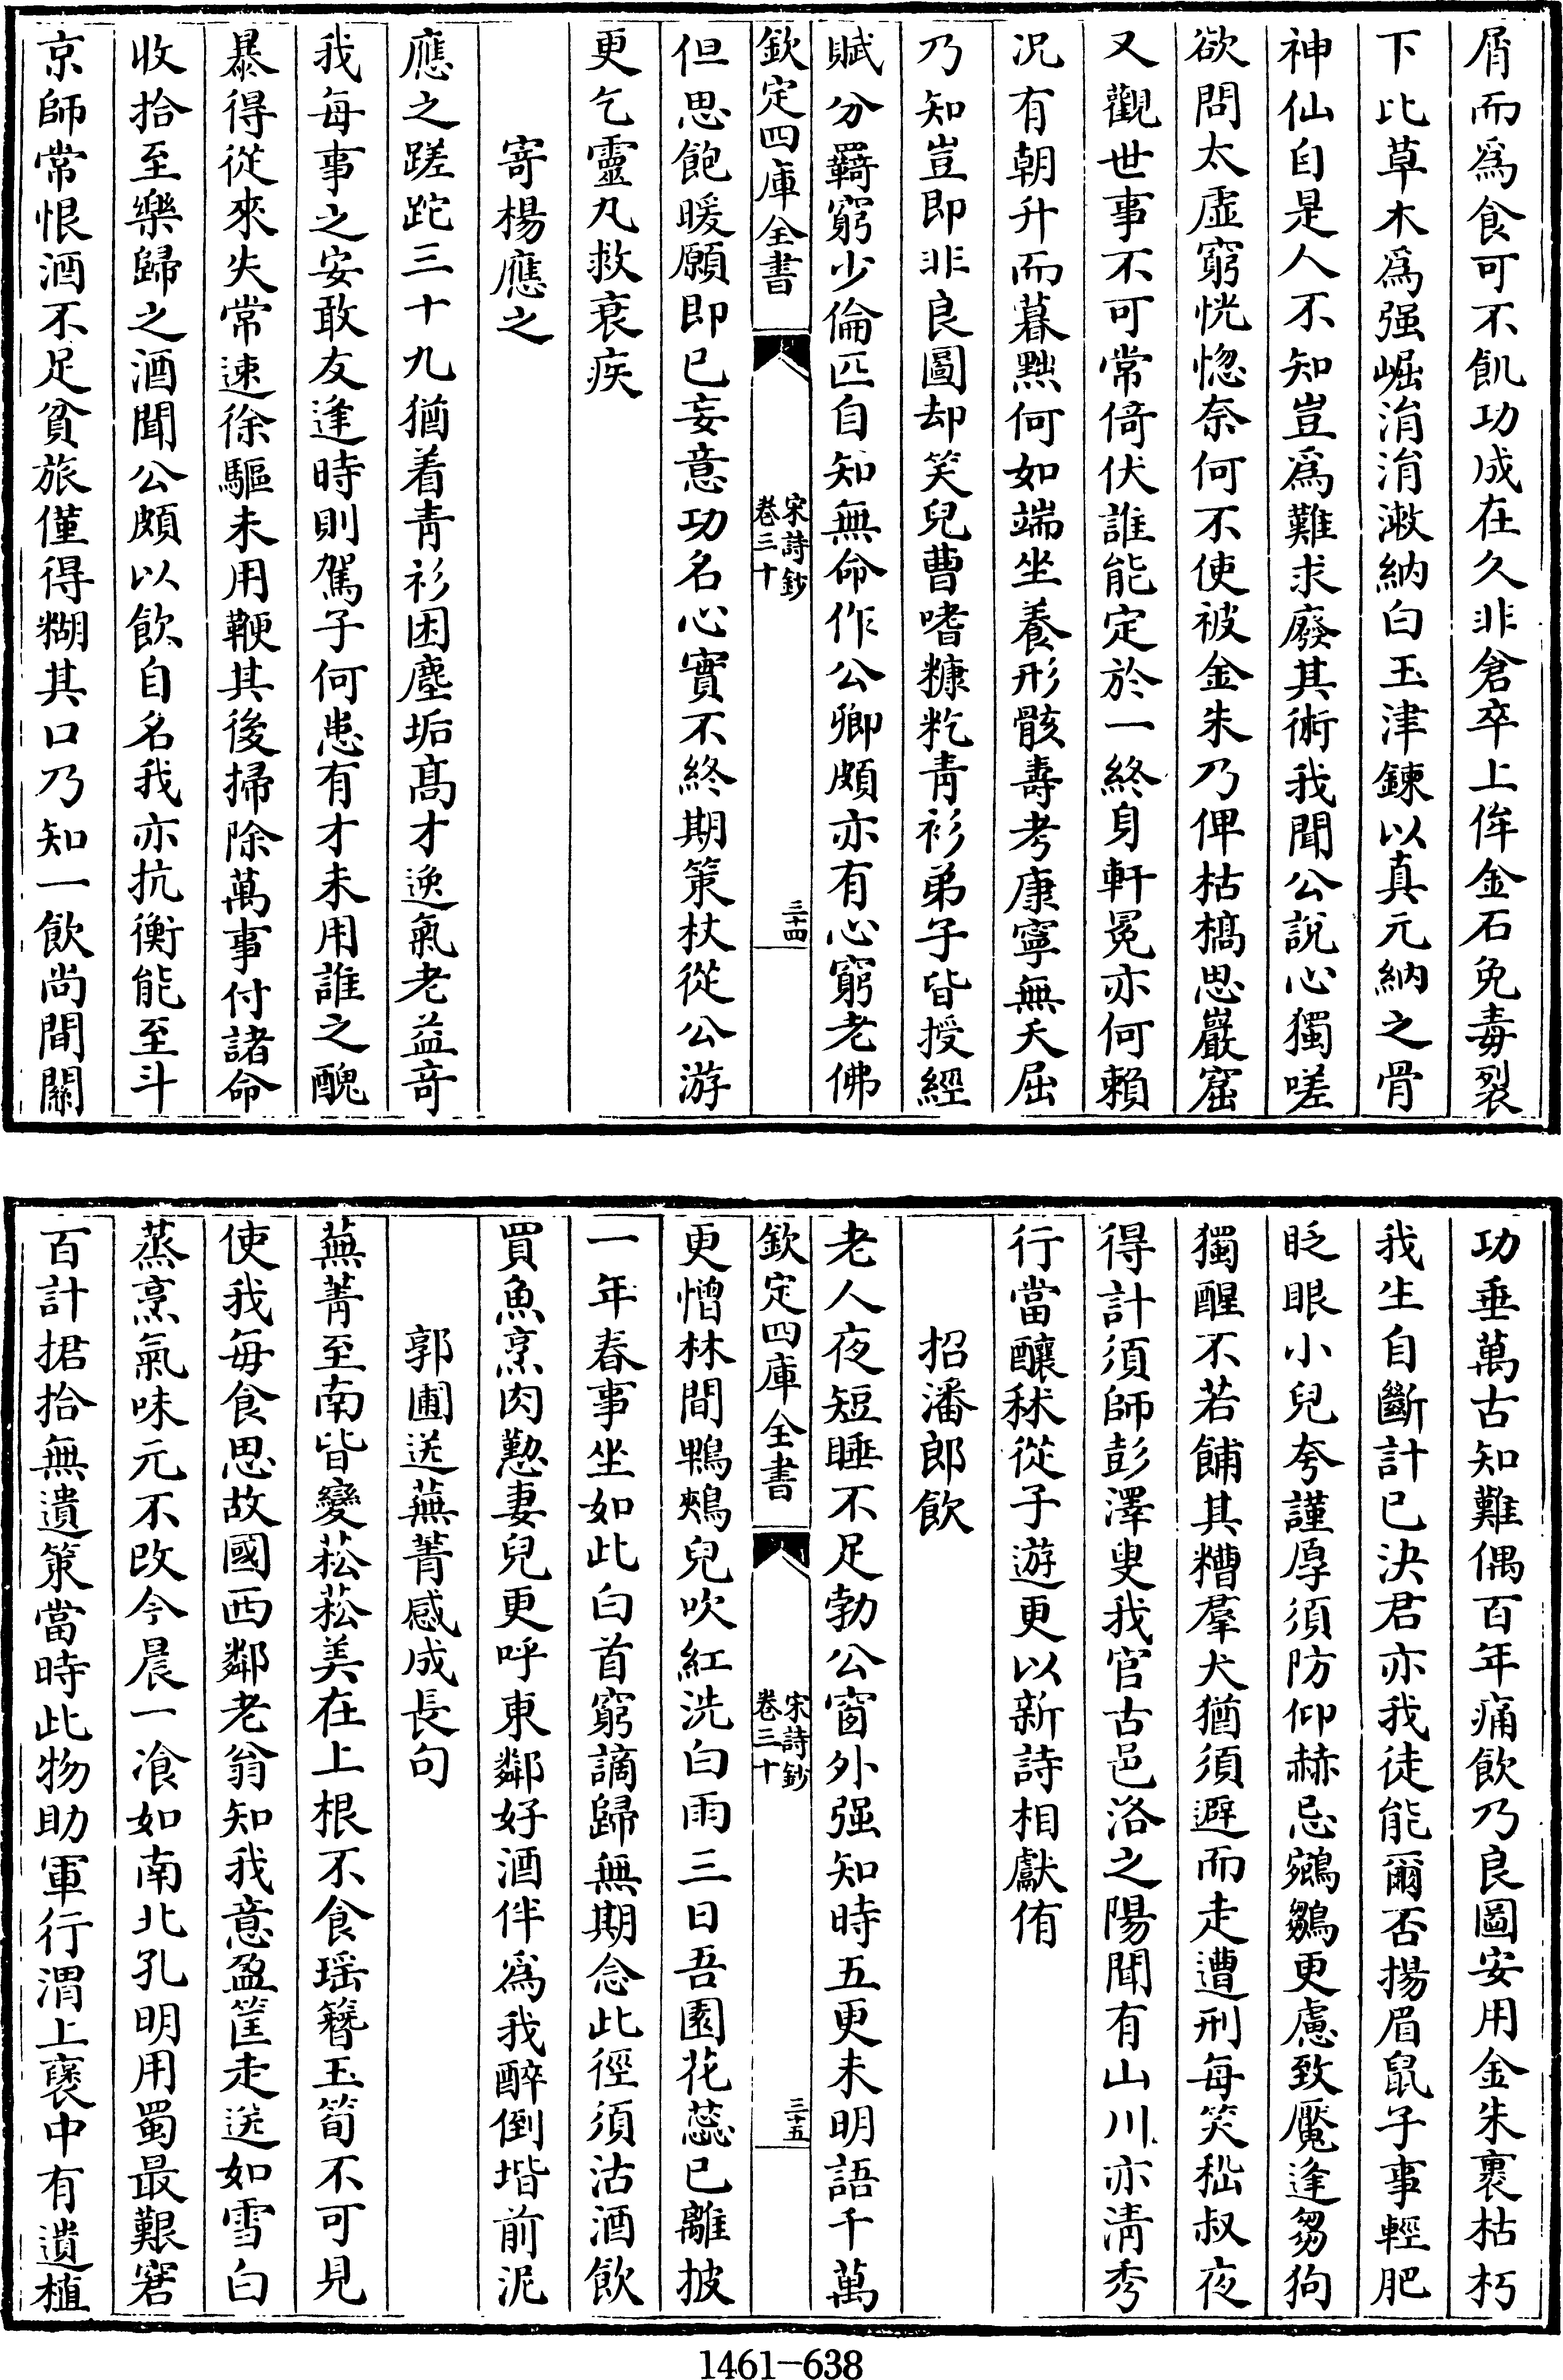 屑而為食可不飢功成在久非倉卒上侔金石免毒裂
下比草木為强崛涓涓漱納白玉津鍊以真元納之骨
神仙自是人不知豈為難求廢其術我聞公說心獨嗟
欲問太虛窮恍惚奈何不使被金朱乃俾枯槁思巖窟
又觀世事不可常倚伏誰能定於一終身軒冕亦何賴
况有朝升而暮黜何如端坐養形骸壽考康寧無夭屈
乃知豈即非良圖却笑兒曹嗜糠籺青衫弟子皆授經
賦分羇窮少倫匹自知無命作公卿頗亦有心窮老佛
欽定四庫全書 宋詩鈔 卷三十 三十四
但思飽暖願即已妄意功名心實不終期策杖從公游
更乞靈丸救衰疾
寄楊應之
應之蹉跎三十九猶着青衫困塵垢髙才逸氣老益竒
我每事之安敢友逢時則駕子何患有才未用誰之醜
暴得從來失常速徐驅未用鞭其後掃除萬事付諸命
收拾至樂歸之酒聞公頗以飲自名我亦抗衡能至斗
京師常恨酒不足貧旅僅得糊其口乃知一飲尚間關
功垂萬古知難偶百年痛飲乃良圖安用金朱裹枯朽
我生自斷計已決君亦我徒能爾否揚眉鼠子事輕肥
眨眼小兒夸謹厚須防仰赫忌鵷鶵更慮致魘逢芻狗
獨醒不若餔其糟羣犬猶須避而走遭刑每笑嵇叔夜
得計須師彭澤叟我官古邑洛之陽聞有山川亦淸秀
行當釀秫從子遊更以新詩相獻侑
招潘郎飲
老人夜短睡不足勃公窗外强知時五更未明語千萬
欽定四庫全書 宋詩鈔 卷三十 三十五
更憎林間鴨鵊兒吹紅洗白雨三日吾園花蕊已離披
一年春事坐如此白首窮謫歸無期念此徑須沽酒飲
買魚烹肉懃妻兒更呼東鄰好酒伴為我醉倒堦前泥
郭圃送蕪菁感成長句
蕪菁至南皆變菘菘美在上根不食瑶簪玉筍不可見
使我每食思故國西鄰老翁知我意盈筐走送如雪白
蒸烹氣味元不改今晨一飡如南北孔明用蜀最艱窘
百計捃拾無遺策當時此物助軍行渭上襃中有遺植
1461-638